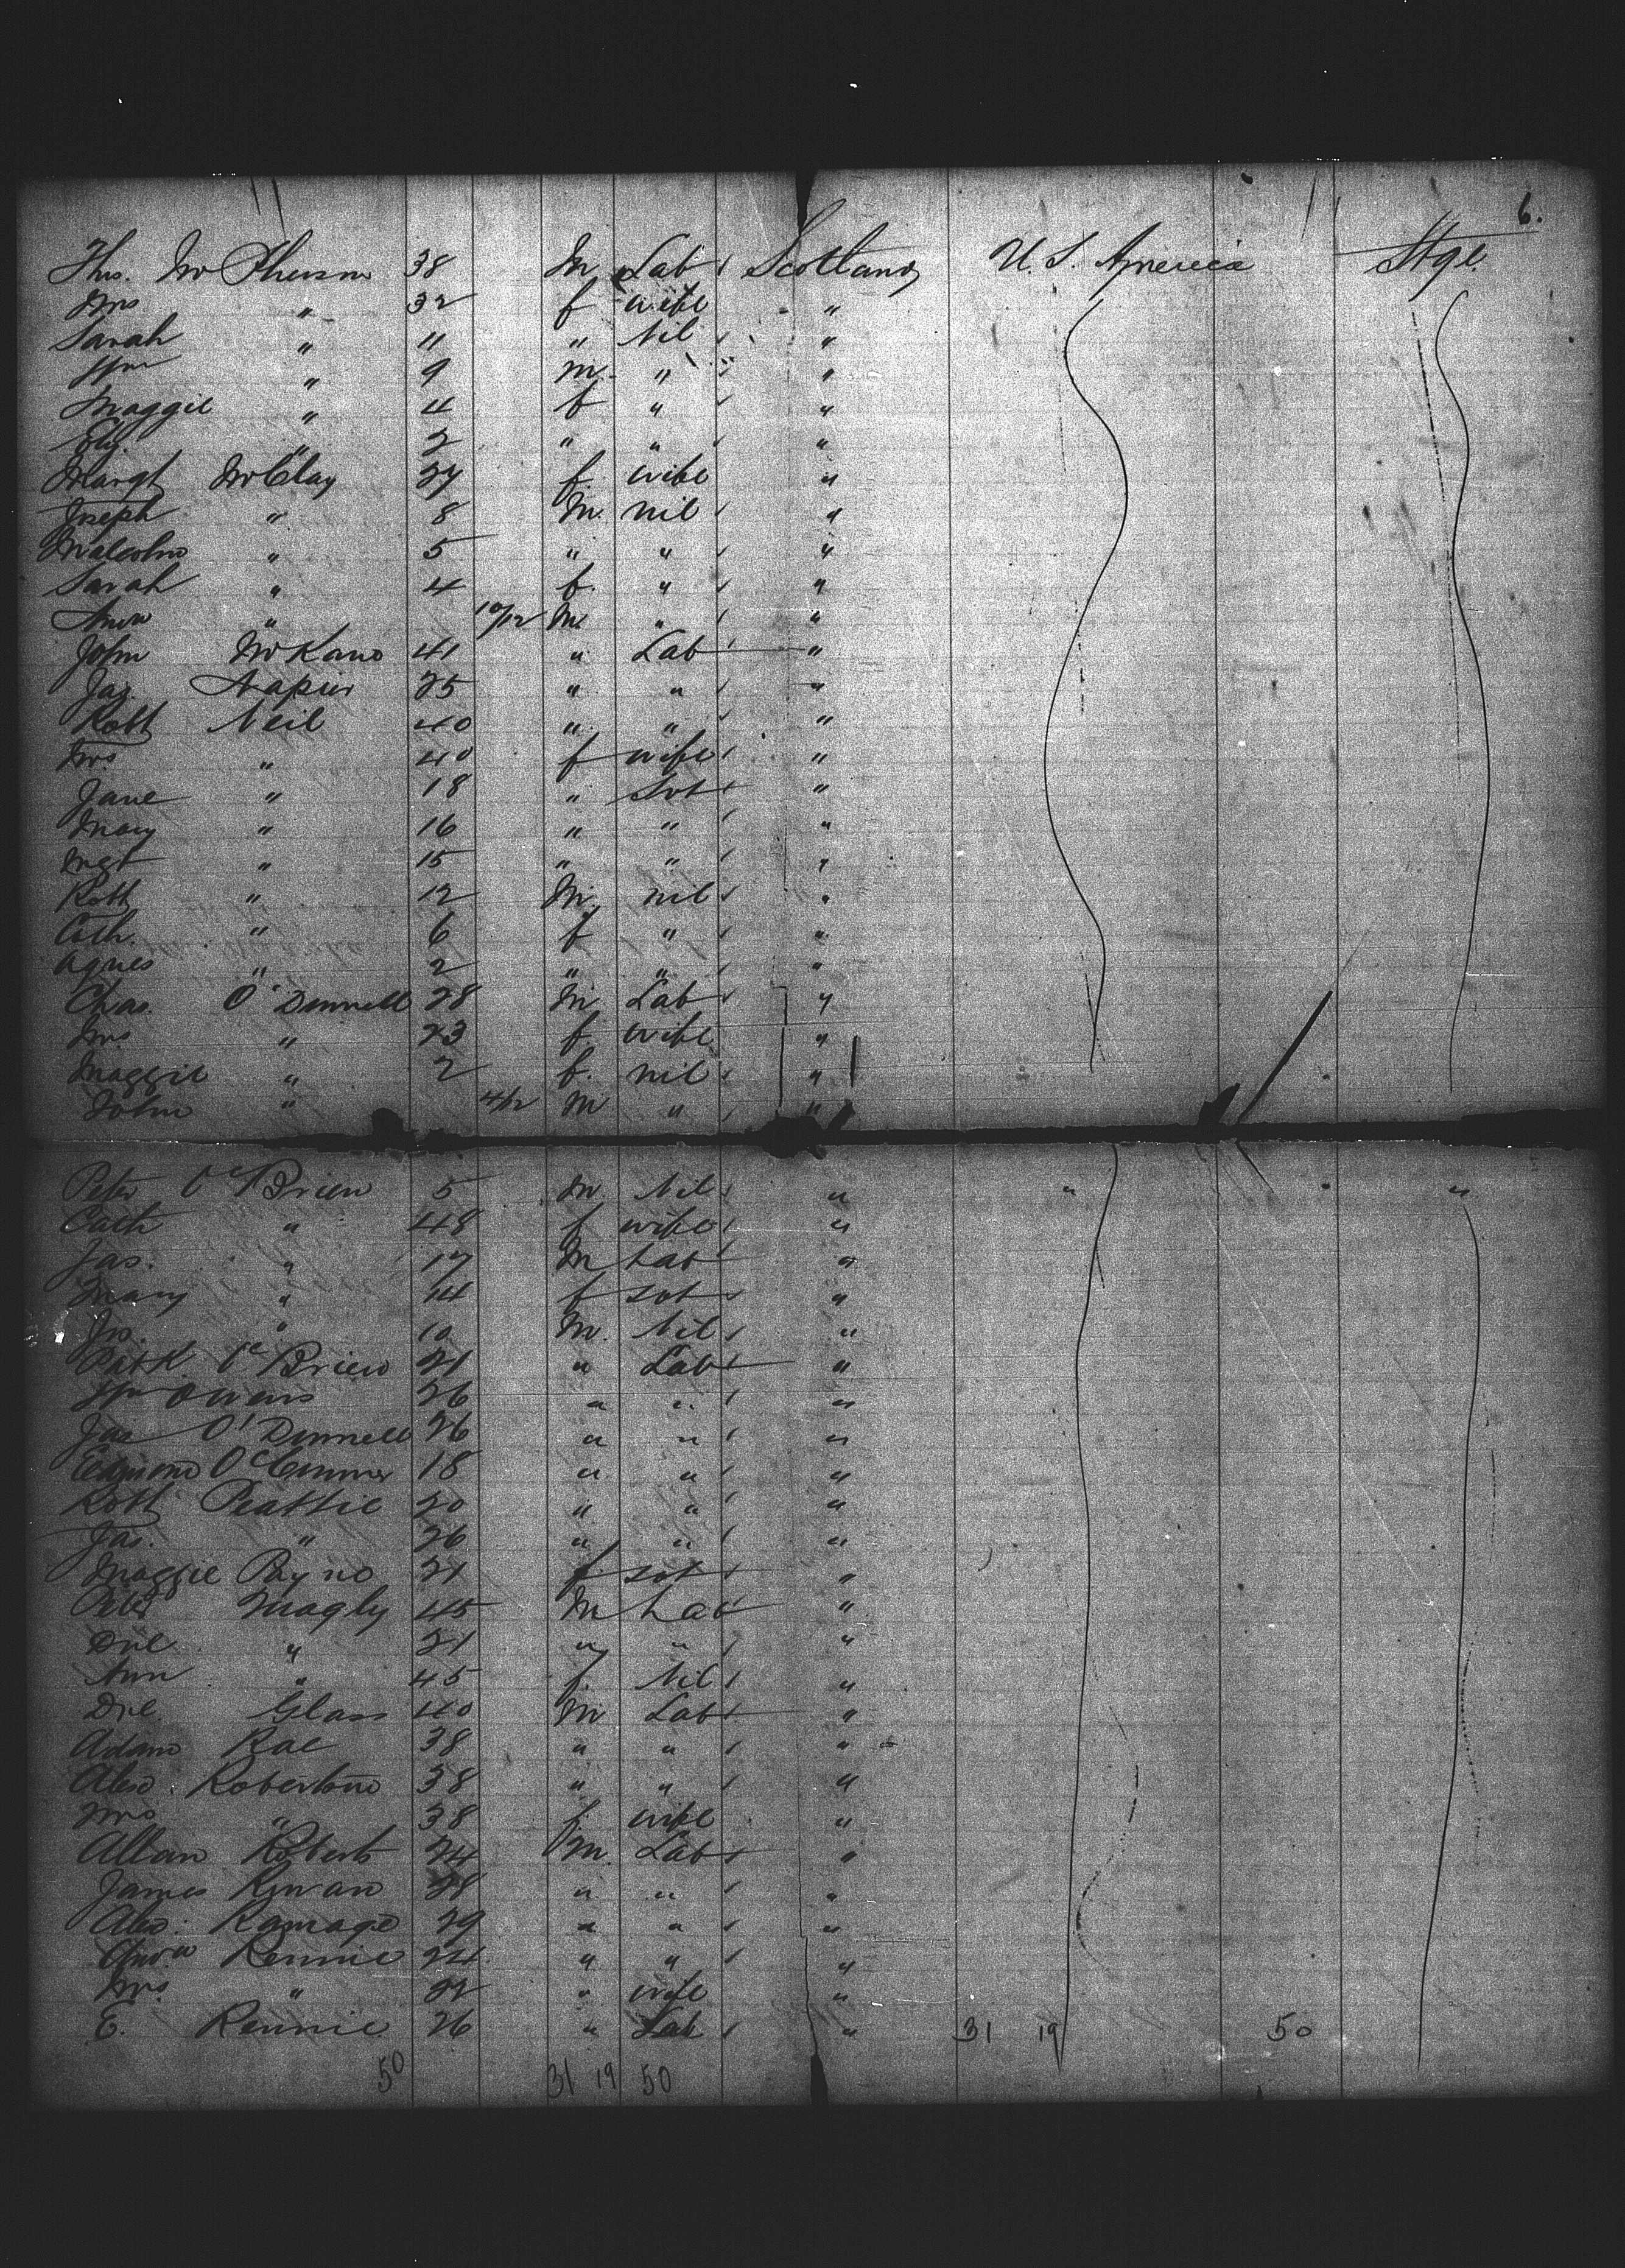 6.
Thos. McPherson 38 M Lab Scotland U. S. America Stge.
Mrs " 32 f wife "
Sarah " 11 " Nil "
Wm " 9 m " "
Maggie " 4 f " "
Eliz. " 2 " " "
Margt McClay 27 f. wife "
Joseph " 8 M. nil "
Malcolm " 5 " " "
Sarah " 4 f. " "
Andw " 10/12 M. " "
John McKano 41 " Lab "
Jas. Napier 25 " " "
Robt Neil 40 " " "
Mrs. " 40 f wife "
Jane " 18 " Svt "
Mary " 16 " " "
Mgt " 15 " " "
Robt " 12 M nil "
Cath. " 6 f " "
Agnes " 2 " " "
Chas. O'Donnell 28 M Lab "
Mrs " 23 f. wife "
Maggie " 2 f. nil "
John " 4/12 M " "
Peter O'Brien 5 M Nil " " "
Cath " 48 f wife "
Jas. " 17 M Lab "
Mary " 14 f svt "
Jno. " 10 M. Nil "
Patk O'Brien 21 " Lab "
Wm Owens 26 " " "
Jas O'Donnell 26 " " "
Edmond O'Connor 18 " " "
Robt Peattie 20 " " "
Jas. " 26 " " "
Maggie Payno 21 f svt "
Peter Quagly 45 M Lab "
Dnl " 21 " " "
Ann " 45 f. Nil "
Dnl Glass 40 M Lab "
Adam Rae 38 " " "
Alex. Robertson 38 " " "
Mrs " 38 f. wife "
Allan Roberts 24 M. Lab "
James Rowan 28 " " "
Alex. Ramage 29 " " "
Andw Rennie 24 " " "
Mrs. " 22 " wife "
E. Rennie 26 " Lab " 31 19 50
50 31 19 50